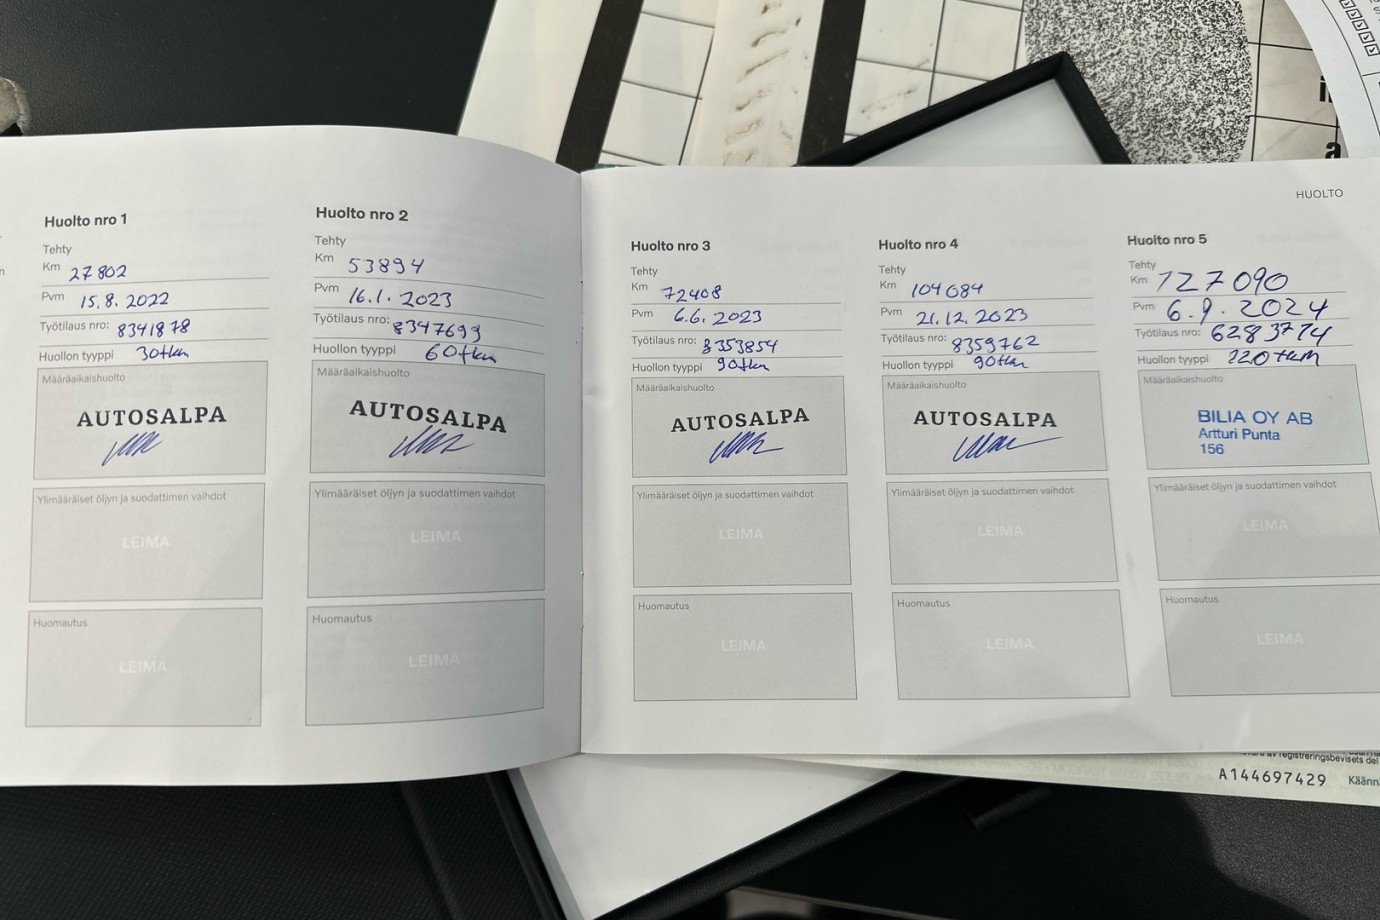 HUOLTO
Huolto nro 1
Tehty
Km 27802
Pvm 15.8.2022
Työtilaus nro: 8341878
Huollon tyyppi 30tkm
Määräaikaishuolto
AUTOSALPA
Ylimääräiset öljyn ja suodattimen vaihdot
LEIMA
Huomautus
LEIMA
Huolto nro 2
Tehty
Km 53894
Pvm 16.1.2023
Työtilaus nro: 8347699
Huollon tyyppi 60tkm
Määräaikaishuolto
AUTOSALPA
Ylimääräiset öljyn ja suodattimen vaihdot
LEIMA
Huomautus
LEIMA
Huolto nro 3
Tehty
Km 72408
Pvm 6.6.2023
Työtilaus nro: 8353854
Huollon tyyppi 90tkm
Määräaikaishuolto
AUTOSALPA
Ylimääräiset öljyn ja suodattimen vaihdot
LEIMA
Huomautus
LEIMA
Huolto nro 4
Tehty
Km 104084
Pvm 21.12.2023
Työtilaus nro: 8359762
Huollon tyyppi 90tkm
Määräaikaishuolto
AUTOSALPA
Ylimääräiset öljyn ja suodattimen vaihdot
LEIMA
Huomautus
LEIMA
Huolto nro 5
Tehty
Km 127090
Pvm 6.9.2024
Työtilaus nro: 6283774
Huollon tyyppi 120tkm
Määräaikaishuolto
BILIA OY AB
Artturi Punta
156
Ylimääräiset öljyn ja suodattimen vaihdot
LEIMA
Huomautus
LEIMA
av registreringsbevisets del
A144697429